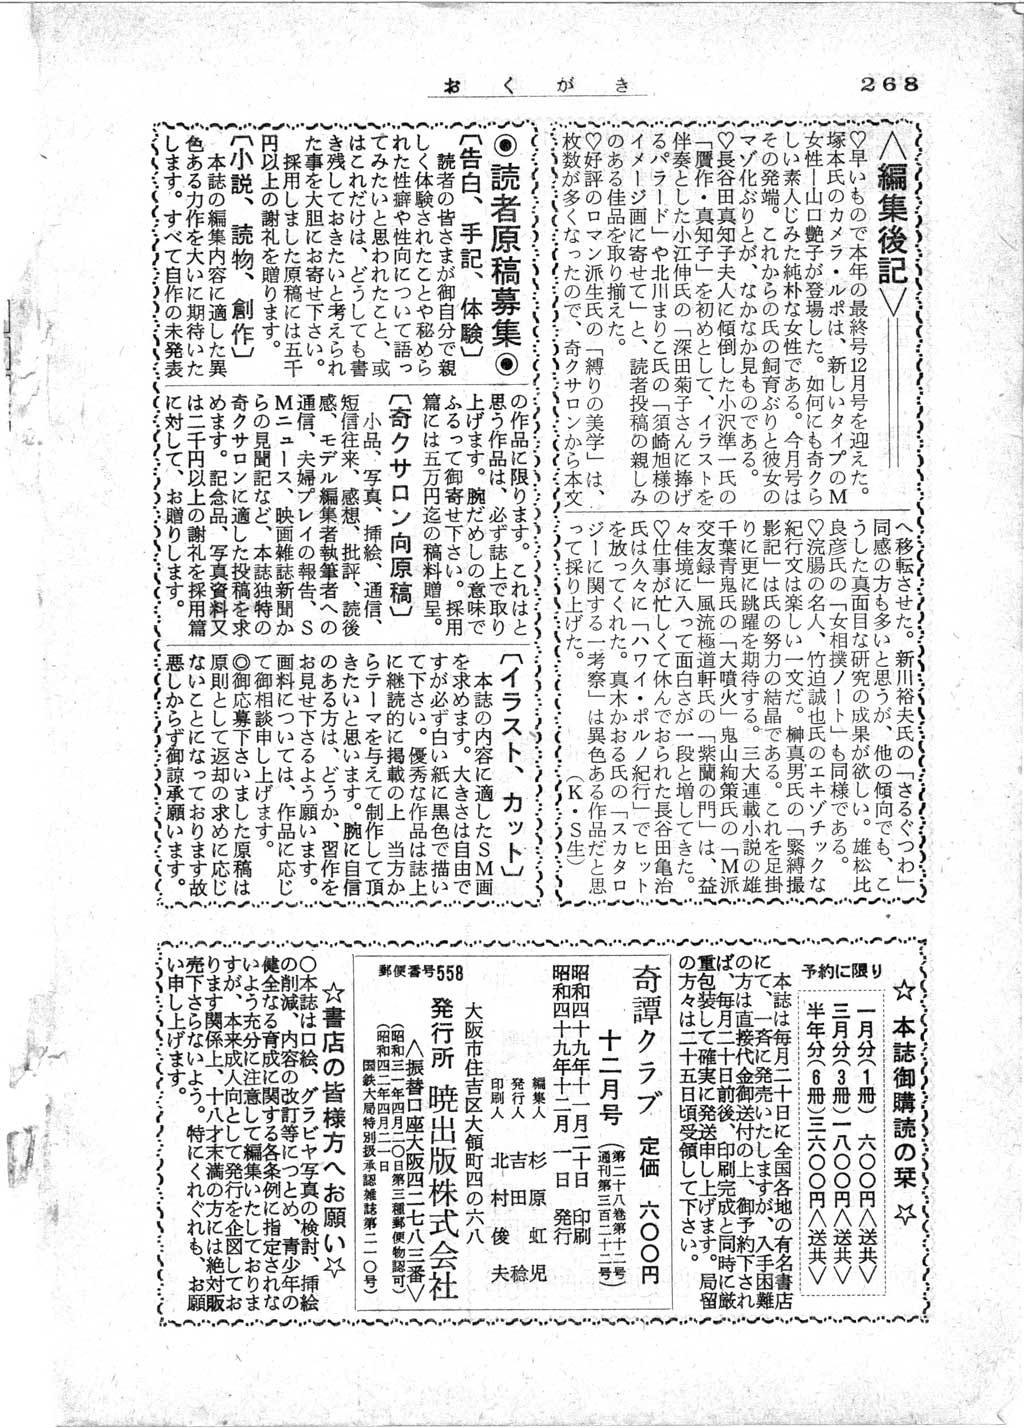 268
おくがき
＜編集後記＞
♡早いもので本年の最終号12月号を迎えた。
塚本氏のカメラ・ルポは、新しいタイプのM
女性―山口艶子が登場した。如何にも奇クら
しい素人じみた純朴な女性である。今月号は
その発端。これからの氏の飼育ぶりと彼女の
マゾ化ぶりとが、なかなか見ものである。
♡長谷田真知子夫人に傾倒した小沢準一氏の
「贋作・真知子」を初めとして、イラストを
伴奏とした小江伸氏の「深田菊子さんに捧げ
るバラード」や北川まりこ氏の「須崎旭様の
イメージ画に寄せて」と、読者投稿の親しみ
のある佳品を取り揃えた。
♡好評のロマン派生氏の「縛りの美学」は、
枚数が多くなったので、奇クサロンから本文
へ移転させた。新川裕夫氏の「さるぐつわ」
同感の方も多いと思うが、他の傾向でも、こ
うした真面目な研究の成果が欲しい。雄松比
良彦氏の「女相撲ノート」も同様である。
♡浣腸の名人、竹迫誠也氏のエキゾチックな
紀行文は楽しい一文だ。榊真男氏の「緊縛撮
影記」は氏の努力の結晶である。これを足掛
りに更に跳躍を期待する。三大連載小説の雄
千葉青鬼氏の「大噴火」鬼山絢策氏の「M派
交友録」風流極道軒氏の「紫蘭の門」は、益
々佳境に入って面白さが一段と増してきた。
♡仕事が忙しくて休んでおられた長谷田亀治
氏は久々に「ハワイ・ポルノ紀行」でヒット
を放ってくれた。真木かおる氏の「スカタロ
ジーに関する一考察」は異色ある作品だと思
って採り上げた。
（K・S生）
◉読者原稿募集◉
〔告白、手記、体験〕
読者の皆さまが御自分で親
しく体験されたことや秘めら
れた性癖や性向について語っ
てみたいと思われたこと、或
はこれだけは、どうしても書
き残しておきたいと考えられ
た事を大胆にお寄せ下さい。
採用しました原稿には五千
円以上の謝礼を贈ります。
〔小説、読物、創作〕
本誌の編集内容に適した異
色ある力作を大いに期待いた
します。すべて自作の未発表
の作品に限ります。これはと
思う作品は、必ず誌上で取り
上げます。腕だめしの意味で
ふるって御寄せ下さい。採用
篇には五万円迄の稿料贈呈。
〔奇クサロン向原稿〕
小品、写真、挿絵、通信、
短信往来、感想、批評、読後
感、モデル編集者執筆者への
通信、夫婦プレイの報告、S
Mニュース、映画雑誌新聞か
らの見聞記など、本誌独特の
奇クサロンに適した投稿を求
めます。記念品、写真資料又
は二千円以上の謝礼を採用篇
に対して、お贈りします。
〔イラスト、カット〕
本誌の内容に適したSM画
を求めます。大きさは自由で
すが必ず白い紙に黒色で描い
て下さい。優秀な作品は誌上
に継続的に掲載の上　当方か
らテーマを与えて制作して頂
きたいと思います。腕に自信
のある方は、どうか、習作を
お見せ下さるよう願います。
画料については、作品に応じ
て御相談申し上げます。
◎御応募下さいました原稿は
原則として返却の求めに応じ
ないことになっております故
悪しからず御諒承願います。
☆本誌御購読の栞☆
予約に限り
一月分（1冊）　六〇〇円＜送共＞
三月分（3冊）一八〇〇円＜送共＞
半年分（6冊）三六〇〇円＜送共＞
本誌は毎月二十日に全国各地の有名書店
にて、一斉に発売いたしますが、入手困難
の方は直接代金御送付の上、御予約下され
ば、毎月二十日前後、印刷完成と同時に厳
重包装して確実に発送申し上げます。局留
の方々は二十五日頃受領して下さい。
奇譚クラブ　定価　六〇〇円
十二月号（第二十八巻第十二号）
（通刊第三百二十二号）
昭和四十九年十一月二十日　印刷
昭和四十九年十二月一日　発行
編集人　杉原虹児
発行人　吉田稔
印刷人　北村俊夫
大阪市住吉区大領町四の六八
発行所　暁出版株式会社
郵便番号558
＜振替口座大阪四二七八三番＞
（昭和三一年四月二〇日第三種郵便物認可）
（昭和四二年四月二一日
国鉄大局特別扱承認雑誌第二一〇号）
☆書店の皆様方へお願い☆
〇本誌は口絵、グラビヤ写真の検討、挿絵
の削減、内容の改訂等につとめ、青少年の
健全なる育成に関する各条例に指定されな
いよう充分に注意して編集いたしておりま
すが、本来成人向として発行を企図してお
ります関係上、十八才未満の方には絶対販
売下さらないよう。特にくれぐれも、お願
い申し上げます。